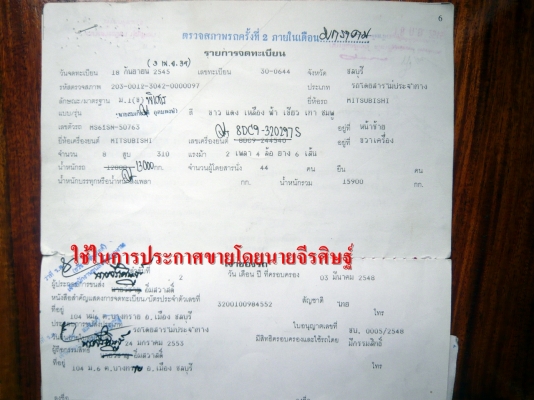 6
ตรวจสภาพรถครั้งที่ 2 ภายในเดือน มกราคม
รายการจดทะเบียน
วันจดทะเบียน 18 กันยายน 2545 เลขทะเบียน 30-0644 จังหวัด ชลบุรี
รหัสตรวจสภาพ 203-0012-3042-0000097 ประเภท รถโดยสารไม่ประจำทาง
ลักษณะ/มาตรฐาน ม.1(ข) พิเศษ ยี่ห้อรถ MITSUBISHI
แบบ/รุ่น สี ขาว แดง เหลือง ฟ้า เขียว เทา ชมพู
8DC9-320297S
เลขตัวรถ MS615N-50763 เลขเครื่องยนต์ 8DC9-244540 อยู่ที่ หน้าซ้าย
ยี่ห้อเครื่องยนต์ MITSUBISHI อยู่ที่ ขวาเครื่อง
จำนวน 8 สูบ 310 แรงม้า 2 เพลา 4 ล้อ ยาง 6 เส้น
น้ำหนักรถ 13000 กก. จำนวนผู้โดยสารนั่ง 44 คน ยืน คน
น้ำหนักบรรทุกหรือน้ำหนักลงเพลา กก. น้ำหนักรวม 15900 กก.
ใช้ในการประกาศขายโดยนายจีรศิษฐ์
2 วัน เดือน ปี ที่ครอบครอง 03 มีนาคม 2548
ผู้ประกอบการขนส่ง อิ่มสวาสดิ์
หนังสือสำคัญแสดงการจดทะเบียน/บัตรประจำตัวเลขที่ 3200100984552 สัญชาติ ไทย
ที่อยู่ 104 หมู่ ต.บางทราย อ.เมือง ชลบุรี
รถโดยสารไม่ประจำทาง ใบอนุญาตเลขที่ ชบ. 0005/2548
24 มกราคม 2553 มีสิทธิครอบครองและใช้รถโดย มีกรรมสิทธิ์
ผู้ถือกรรมสิทธิ์ อิ่มสวาสดิ์
ที่อยู่ 104 ม.6 ต.บางทราย อ.เมือง ชลบุรี